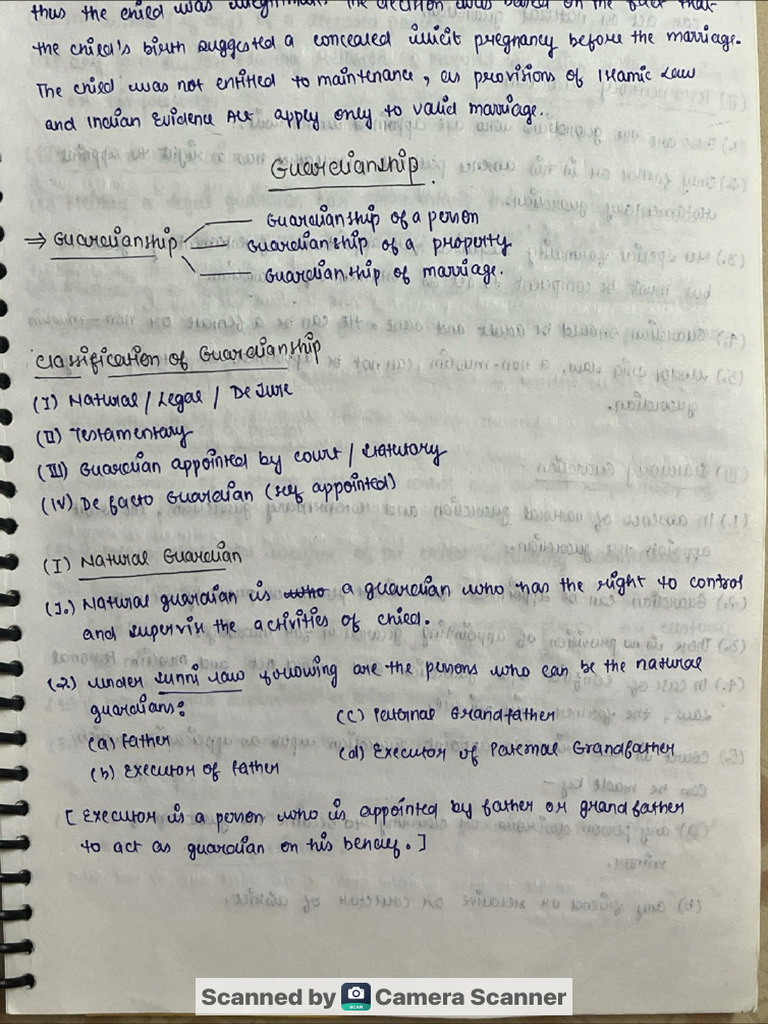 thus the child was illegitimate. The decision was based on the fact that
the child's birth suggested a concealed illicit pregnancy before the marriage.
The child was not entitled to maintenance, as provisions of Islamic Law
and Indian Evidence Act apply only to valid marriage.
Guardianship.
⇒ Guardianship
Guardianship of a person
Guardianship of a property
Guardianship of marriage.
Classification of Guardianship
(I) Natural / Legal / De Jure
(II) Testamentary
(III) Guardian appointed by court / statutory
(IV) De facto Guardian (self appointed)
(I) Natural Guardian
(1.) Natural guardian is who a guardian who has the right to control
and supervise the activities of child.
(2) Under Sunni law following are the persons who can be the natural
guardians:
(a) Father
(b) Executor of Father
(c) Paternal Grandfather
(d) Executor of Paternal Grandfather
[Executor is a person who is appointed by father or grandfather
to act as guardian on his behalf.]
Scanned by Camera Scanner